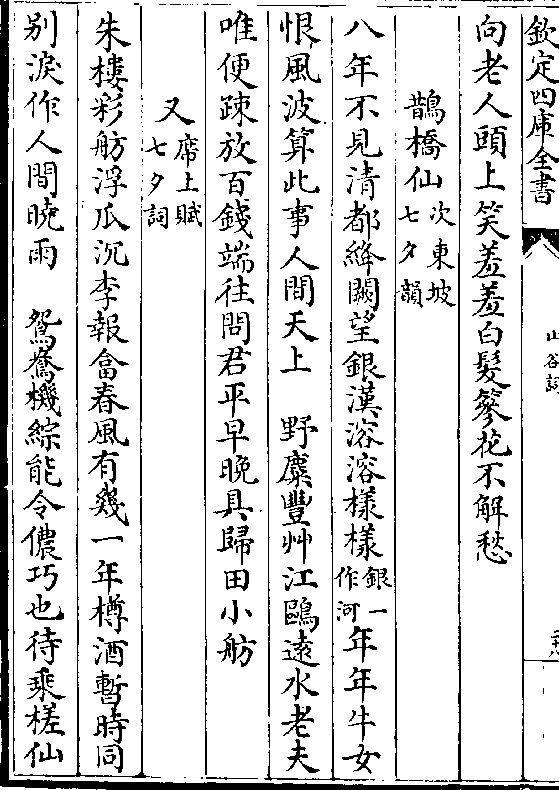 欽定四庫全書
山谷詞
向老人頭上笑羞羞白髮簪花不解愁
鵲橋仙 次東坡七夕韻
八年不見清都絳闕望銀漢溶溶樣樣 銀一作河 年年牛女
恨風波算此事人間天上　野麋豐艸江鷗遠水老夫
唯便踈放百錢端往問君平早晚具歸田小舫
又 席上賦七夕詞
朱樓彩舫浮瓜沉李報畣春風有幾一年樽酒暫時同
别淚作人間曉雨　鴛鴦機綜能令儂巧也待乘槎仙